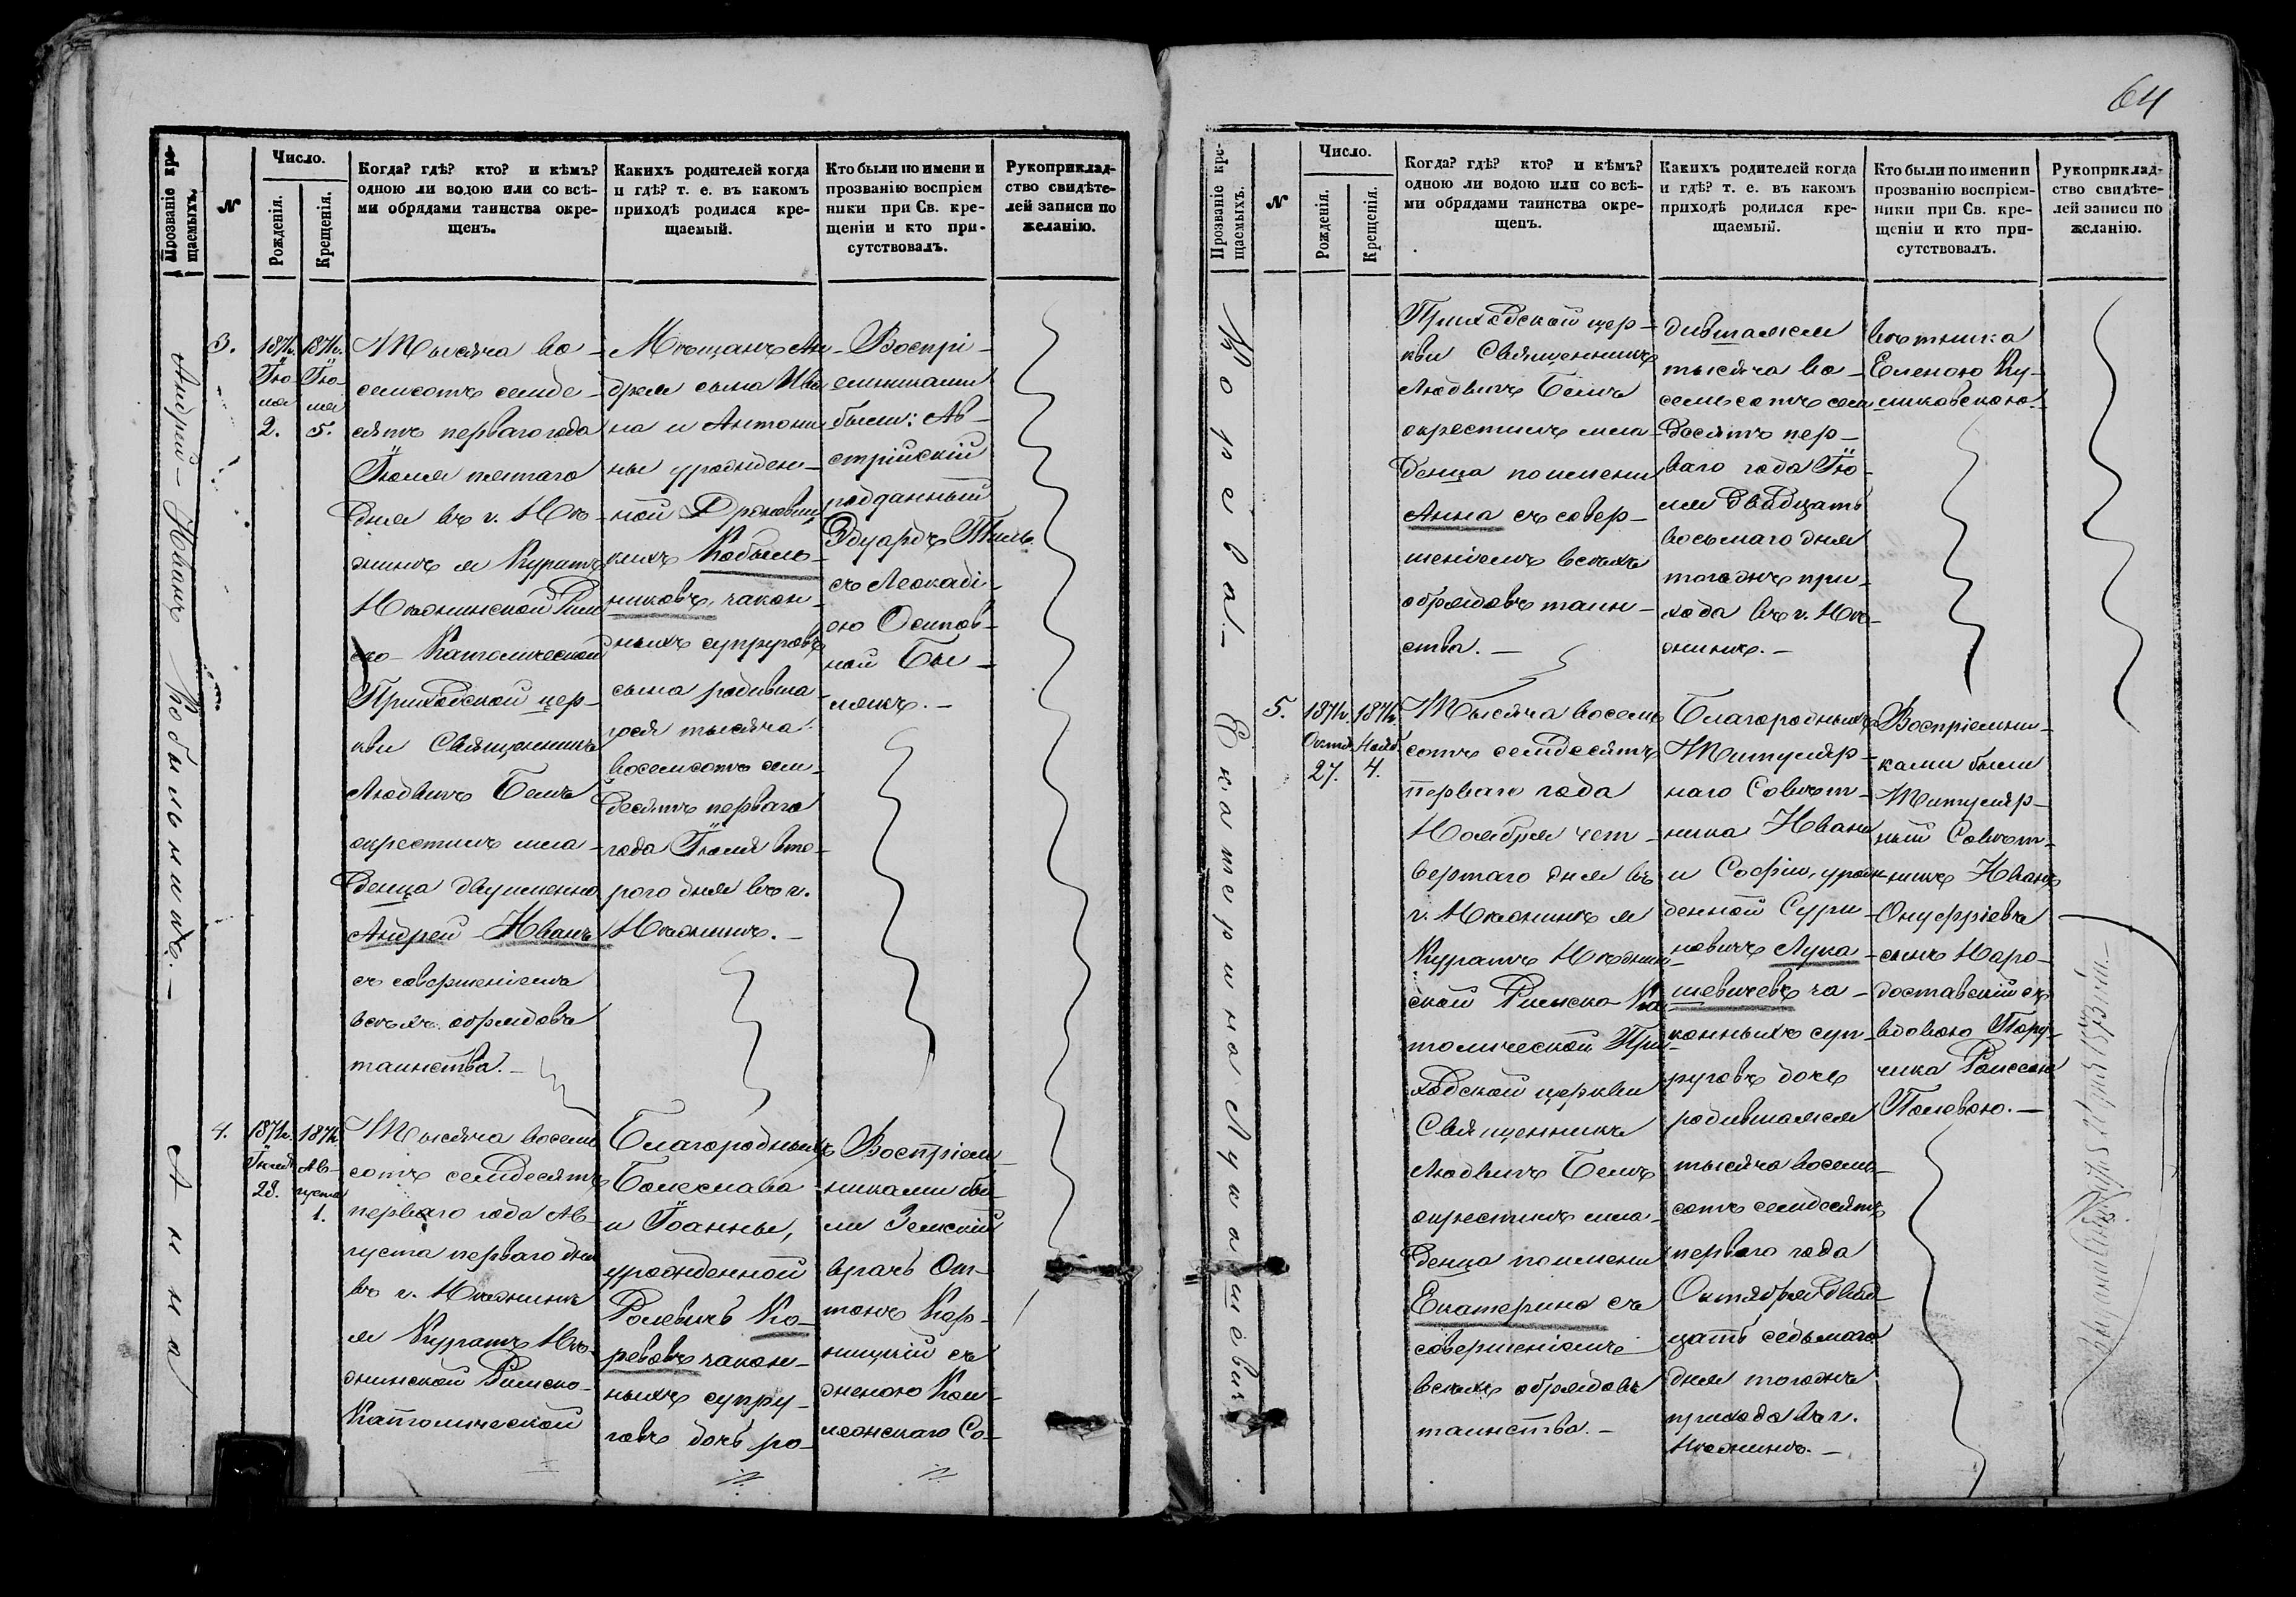 64
Прозваніе кре-
щаемыхъ.
№
Число.
Рожденія.
Крещенія.
Когда? гдѣ? кто? и кѣмъ?
одною ли водою или со всѣ-
ми обрядами таинства окре-
щенъ.
Какихъ родителей когда
и гдѣ? т. е. въ какомъ
приходѣ родился кре-
щаемый.
Кто были по имени и
прозванію воспріем
ники при Св. кре-
щеніи и кто при-
сутствовалъ.
Рукоприклад-
ство свидѣте-
лей записи по
желанію.
Андрей-Иванъ Кобыльникъ.-
3.
1871г.
Ію-
ля
2.
1871г.
Ію-
ля
5.
Тысяча во-
семсотъ семде-
сятъ перваго года
Іюля пятаго
дня въ г. Нѣ-
жинѣ я Куратъ
Нѣжинской Рим
ско-Католической
Приходской цер-
кви Священникъ
Людвигъ Бемъ
окрестилъ мла-
денца двуименно
Андрей-Иванъ
съ совершеніемъ
всѣхъ обрядовъ
таинства.-
Мѣщанъ Ан-
дрея сына Ива
на и Антони
ны урожден-
ной
Кобыль-
никовъ, закон-
ныхъ супруговъ
сына родивша
гося тысяча
восемсотъ сем-
десятъ перваго
года Іюля вто-
рого дня въ г.
Нѣжинѣ.-
Воспрі-
емниками
были: Ав-
стрійскій
подданный
Эдуардъ
съ Леокаді-
ею Осипов-
ной

Анна
4.
1871г.
Іюля
28.
1871г.
Ав-
густа
1.
Тысяча восемь
сотъ семдесятъ
перваго года Ав-
густа перваго дня
въ г. Нѣжинѣ
я Куратъ Нѣ-
жинской Римско-
Католической
Благородныхъ
Болеслава
и Іоанны,
урожденной
Ролевичъ Ко-
ревовъ закон-
ныхъ супру-
говъ дочь ро-
Воспріем-
никами бы-
ли Земскій
врачъ От-
тонъ Кор-
ницкій съ
женою Кол-
лежскаго Со-
Прозваніе кре-
щаемыхъ.
№
Число.
Рожденія.
Крещенія.
Когда? гдѣ? кто? и кѣмъ?
одною ли водою или со всѣ-
ми обрядами таинства окре-
щенъ.
Какихъ родителей когда
и гдѣ? т. е. въ какомъ
приходѣ родился кре-
щаемый.
Кто были по имени и
прозванію воспріем-
ники при Св. кре-
щеніи и кто при-
сутствовалъ.
Рукоприклад-
ство свидѣте-
лей записи по
желанію.
Корева.-
Приходской цер-
кви Священникъ
Людвигъ Бемъ
окрестилъ мла-
денца по имени
Анна съ совер-
шеніемъ всѣхъ
обрядовъ таин-
ства.-
дившаяся
тысяча во-
семьсотъ сем
десятъ пер-
ваго года Ію-
ля двадцать
восьмаго дня
тогожъ при-
хода въ г. Нѣ-
жинѣ.-
вѣтника
Еленою Ку-
ликовскою.
Екатерина Лукашевичъ
5.
1871г.
Октяб.
27.
1871г.
Нояб.
4.
Тысяча восемь
сотъ семдесятъ
перваго года
Ноября чет-
вертаго дня въ
г. Нѣжинѣ я
Куратъ Нѣжин-
ской Римско-Ка-
толической При-
ходской церкви
Священникъ
Людвигъ Бемъ
окрестилъ мла-
денца по имени
Екатерина съ
совершеніемъ
всѣхъ обрядовъ
таинства.-
Благородныхъ
Титуляр-
наго Совѣт-
ника Ивана
и Софіи, урож-
денной Сури
новичъ Лука-
шевичевъ за-
конныхъ суп-
руговъ дочь
родившаяся
тысяча восемь
сотъ семдесятъ
перваго года
Октября двад-
цать седьмаго
дня тогожъ
прихода въ г.
Нѣжинѣ.-
Воспріемни-
ками были
Титуляр-
ный Совѣт-
никъ Иванъ
Онуфріевъ
сынъ Наро-
доставскій съ
вдовою Пору-
чика
Полевою.-